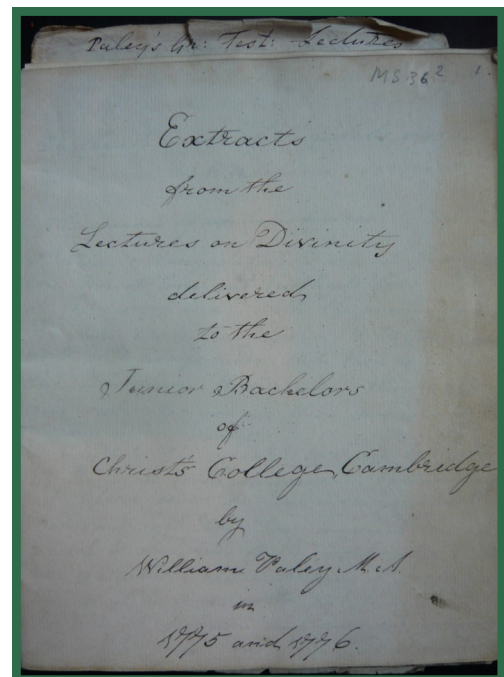 Paley's Gr: Test: Lectures
MS 36 2 1.
Extracts
from the
Lectures on Divinity
delivered
to the
Junior Bachelors
of
Christ's College, Cambridge
by
William Paley M.A.
in
1775 and 1776.